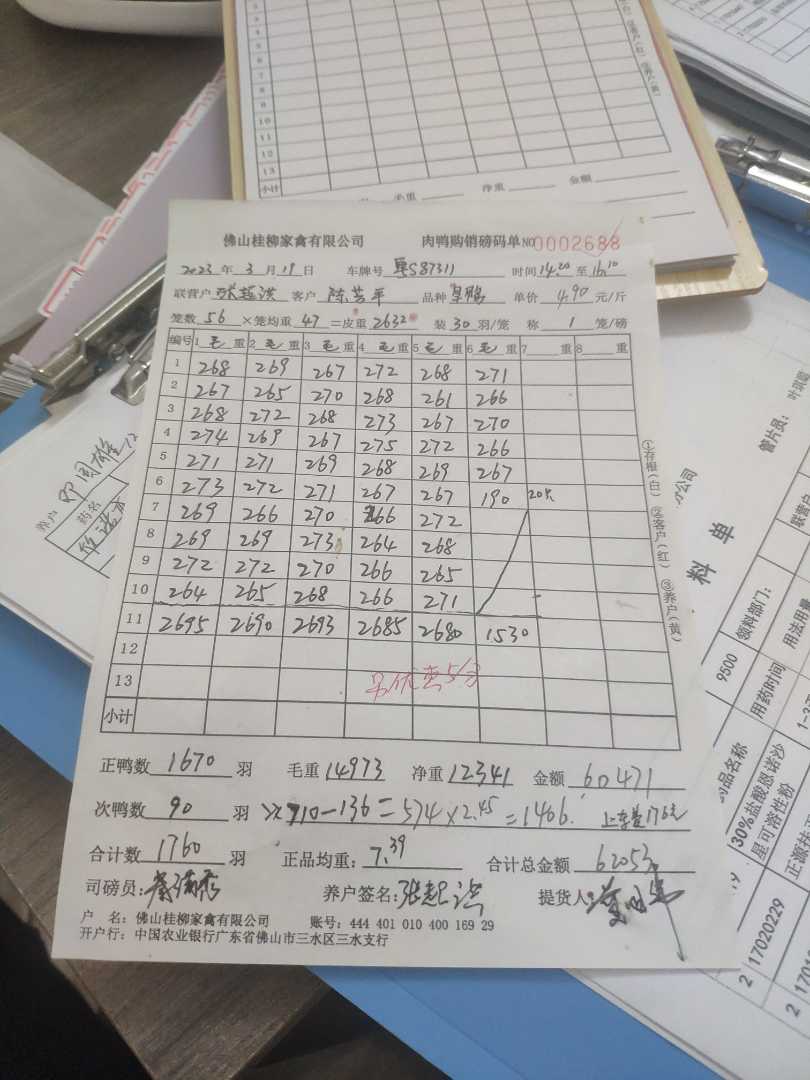 1
2
3
4
5
6
7
8
9
10
11
12
13
小计
毛重
净重
金额
佛山桂柳家禽有限公司 肉鸭购销磅码单 NO 0002688
2023 年 3 月 19 日 车牌号 粤S87311 时间 14:20 至 16:10
联营户 客户 陈芸平 品种 单价 4.90 元/斤
笼数 56 ×笼均重 47 =皮重 2632 装 30 羽/笼 称 1 笼/磅
编号 1 毛 重 2 毛 重 3 毛 重 4 毛 重 5 毛 重 6 毛 重 7 重 8 重
1 268 269 267 272 268 271
2 267 265 270 268 261 266
3 268 272 268 273 267 270
4 274 269 267 275 272 266
5 271 271 269 268 269 267
6 273 272 271 267 267 190 20只
7 269 266 270 266 272
8 269 269 273 264 268
9 272 272 270 266 265
10 264 265 268 266 271
11 2695 2690 2693 2685 2680 1530
12
13
小计
①存根（白） ②客户（红） ③养户（黄）
正鸭数 1670 羽 毛重 14973 净重 12341 金额 60471
次鸭数 90 羽 710-136=574×2.45=1406. 上车差176元
合计数 1760 羽 正品均重： 7.39 合计总金额 62053
司磅员： 养户签名： 提货人：
户 名：佛山桂柳家禽有限公司 账号：444 401 010 400 169 29
开户行：中国农业银行广东省佛山市三水区三水支行
养户 邓国雄
药名
管片员：
料 单
领料部门：
9500
用法用量
用药时间
30%盐酸恩诺沙
星可溶性粉
2 17020229